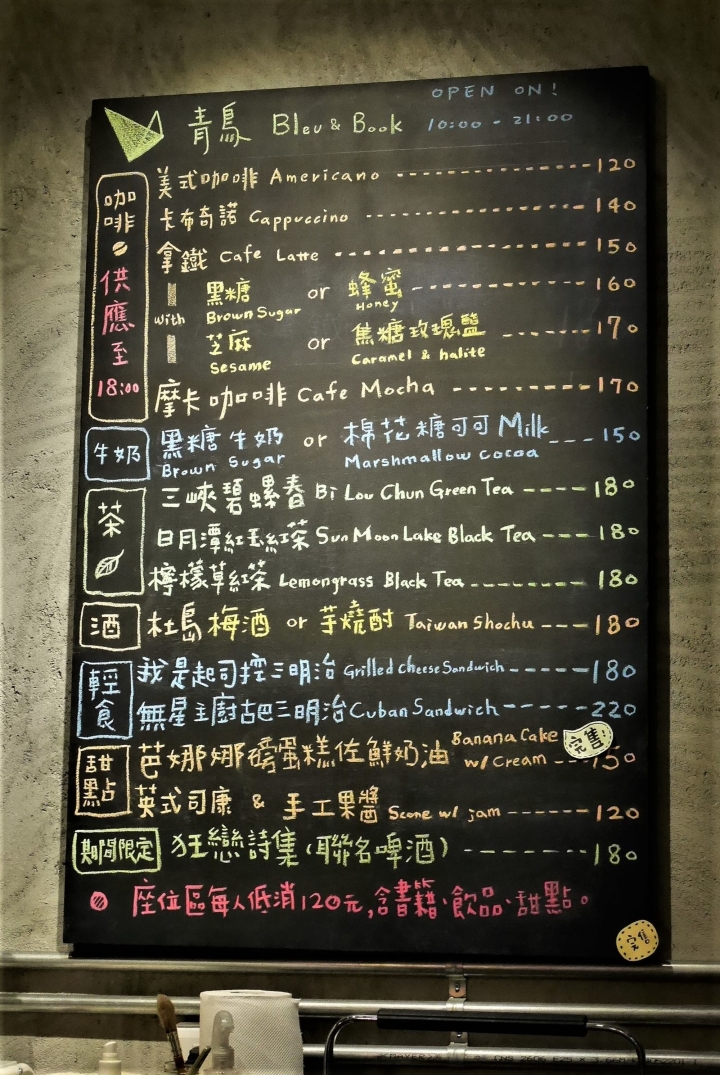 OPEN ON!
青鳥 Bleu & Book 10:00 - 21:00
咖啡
供應至
18:00
美式咖啡 Americano 120
卡布奇諾 Cappuccino 140
拿鐵 Cafe Latte 150
黑糖 or 蜂蜜 160
with Brown Sugar Honey
芝麻 or 焦糖玫瑰鹽 170
Sesame Caramel & halite
摩卡咖啡 Cafe Mocha 170
牛奶
黑糖牛奶 or 棉花糖可可 Milk 150
Brown Sugar Marshmallow cocoa
茶
三峽碧螺春 Bi Lou Chun Green Tea 180
日月潭紅玉紅茶 Sun Moon Lake Black Tea 180
檸檬草紅茶 Lemongrass Black Tea 180
酒
杜島梅酒 or 芋燒酎 Taiwan Shochu 180
輕食
我是起司控三明治 Grilled Cheese Sandwich 180
無星主廚古巴三明治 Cuban Sandwich 220
甜點
芭娜娜磅蛋糕佐鮮奶油 Banana Cake w/ Cream 完售! 150
英式司康 & 手工果醬 Scone w/ jam 120
期間限定
狂戀詩集(聯名啤酒) 180
座位區每人低消120元,含書籍、飲品、甜點。
完售